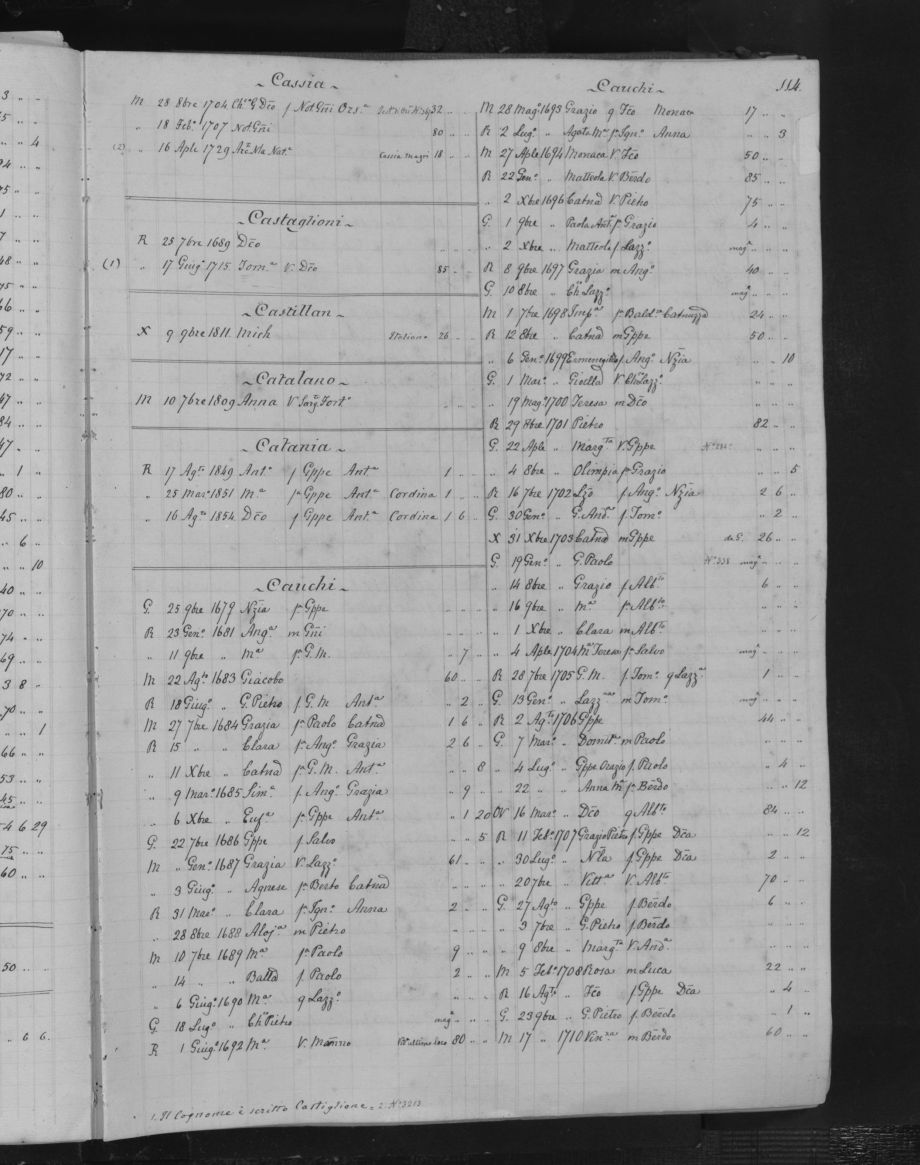 Cassia
M 28 8bre 1704 Chᵃ G Dco f Not Gni Ors.ᵃ 32 „ „
„ 18 Febº 1707 Not Gni 80 „ „
(2) „ 16 Aple 1729 Nla Natᵉ Cassia Magri 18 „ „
Castaglioni
R 25 7bre 1689 Dco „ „ „
(1) „ 17 Giugº 1715 Tomᵃ V. Dco 85 „ „
Castillan
X 9 9bre 1811 Mich Stationo 26 „ „
Catalano
M 10 7bre 1809 Anna V Fortº „ „ „
Catania
R 17 Agto 1849 Antº f Gppe Antᵃ 1 „ „
„ 25 Marº 1851 Mᵃ fᵃ Gppe Antᵃ Cordina 1 „ „
„ 16 Agº 1854 Dco f Gppe Antᵃ Cordina 1 6 „
Cauchi
G. 25 9bre 1679 Nzia fᵃ Gppe „ „ „
R 23 Genº 1681 Angᵃ m Gni „ „ „
„ 11 9bre „ Mᵃ fᵃ G.M. „ 7 „
M 22 Agto 1683 Giacobo 60 „ „
R 18 Giugº „ G. Pietro f G.M. Antᵃ „ 2 „
M 27 7bre 1684 Grazia fᵃ Paolo Catnᵃ 1 6 „
R 15 „ „ Clara fᵃ Angº Grazia 2 6 „
„ 11 Xbre „ Catnᵃ fᵃ G.M. Antᵃ „ „ 8
„ 9 Marº 1685 Simᵉ f Angº Grazia „ 9 „
„ 6 Xbre „ Eufᵃ fᵃ Gppe Antᵃ „ 1 20
G. 22 7bre 1686 Gppe f Salvo „ „ 5
M „ Genº 1687 Grazia V. Lazzº 61 „ „
„ 3 Giugº „ Agnese fᵃ Berto Catnᵃ „ „ „
R 31 Marº „ Clara fᵃ Ignº Anna 2 „ „
„ 28 8bre 1688 Alojᵃ m Pietro „ „ „
M 10 7bre 1689 Mᵃ fᵃ Paolo 9 „ „
„ 14 „ „ Batta f Paolo 2 „ „
„ 6 Giugº 1690 Mᵃ q Lazzº „ „ „
G. 18 Lugº „ Chº Pietro magª „ „ „
R 1 Giugº 1692 Mᵃ V. Manno 80 „ „
1. Il Cognome è scritto Castiglione = 2. Nº 3213
114.
Cauchi
M 28 Magº 1693 Grazio q Fco Monaca 17 „ „
R 2 Lugº „ Agata Mᵃ fᵃ Ignº Anna „ „ 3
M 27 Aple 1694 Monaca V Fco 50 „ „
R 22 Genº „ Matteola V Berdo 85 „ „
„ 2 Xbre 1696 Catnᵃ V Pietro 75 „ „
G. 1 9bre „ Paola Antᵃ fᵃ Grazio 4 „ „
„ 2 Xbre „ Matteola f Lazzº magª „ „ „
R 8 9bre 1697 Grazia m Angº 40 „ „
G. 10 8bre „ Chº Lazzº magª „ „ „
M 1 7bre 1698 Impᵃ fᵃ Baldᵉ Catnuzza 24 „ „
R 12 8bre „ Catnᵃ m Gppe 50 „ „
„ 6 Genº 1699 Ermenegilda f Angº Nzia „ „ 10
G. 1 Marº „ Gioella V Chº Lazzº „ „ „
„ 19 Magº 1700 Teresa m Dco „ „ „
R 29 8bre 1701 Pietro 82 „ „
G. 22 Aple „ Margta V. Gppe „ „ „
„ 4 8bre „ Olimpia fᵃ Grazio „ „ 5
R 16 7bre 1702 Lzo f Angº Nzia 2 6 „
G. 30 Genº „ G. Andᵃ f. Tomº „ 2 „
X 31 Xbre 1703 Catnᵃ m Gppe de G. 26 „ „
G. 19 Genº „ G. Paolo Nº 338 magª „ „ „
„ 14 8bre „ Grazio f Albto 6 „ „
„ 16 9bre „ Mᵃ fᵃ Albto „ „ „
„ 1 Xbre „ Clara m Albto „ „ „
„ 4 Aple 1704 Mᵃ Teresa fᵃ Salvo magª „ „ „
R 28 7bre 1705 G.M. f Tomº q Lazzº 1 „ „
G. 13 Genº „ Lazzᵃ m Tomº magª „ „ „
R 2 Agº 1706 Gppe 44 „ „
G. 7 Marº „ Domitᵃ m Paolo „ „ „
„ 4 Lugº „ Gppe Orazio f. Paolo „ 4 „
„ 22 „ „ Anna Mᵃ fᵃ Berdo „ „ 12
N 16 Marº „ Dco q Albto 84 „ „
R 11 Febº 1707 Grazio Pietro f Gppe Dca „ „ 12
„ 30 Lugº „ Nla f Gppe Dca 2 „ „
„ 20 7bre „ Vittᵃ V. Albto 70 „ „
G. 27 Agto „ Gppe f Berdo 6 „ „
„ 3 7bre „ G. Pietro f Berdo „ „ „
„ 9 8bre „ Margta V. Andᵃ „ „ „
M 5 Febº 1708 Rosa m Luca 22 „ „
R 16 Agto „ Fco f Gppe Dca „ 4 „
G. 23 9bre „ G. Pietro f Berdo „ 1 „
M 17 „ 1710 Vinza m Berdo 60 „ „